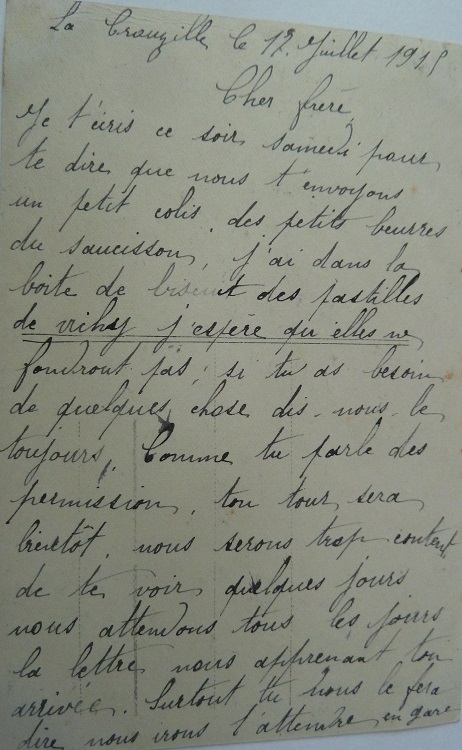 La Crouzille le 12 Juillet 1915
Cher frère
Je t'ecris ce soir samedi pour
te dire que nous t'envoyons
un petit colis, des petits beurres
du saucisson, j'ai dans la
boite de biscuit des pastilles
de vichy j'espère qu'elles ne
fondront pas, si tu as besoin
de quelques chose dis-nous-le
toujours. Comme tu parle des
permission, ton tour sera
bientôt, nous serons trop content
de te voir quelques jours
nous attendons tous les jours
la lettre nous apprenant ton
arrivée. Surtout tu nous le fera
dire nous irons t'attendre en gare